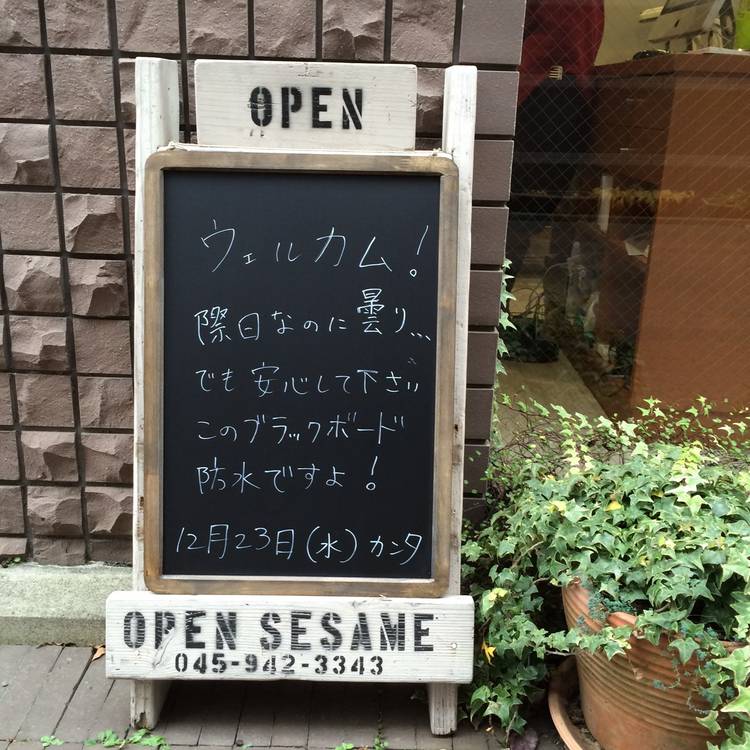 OPEN
ウェルカム!
際日なのに曇り...
でも安心して下さい
このブラックボード
防水ですよ!
12月23日(水)カンタ
OPEN SESAME
045-942-3343